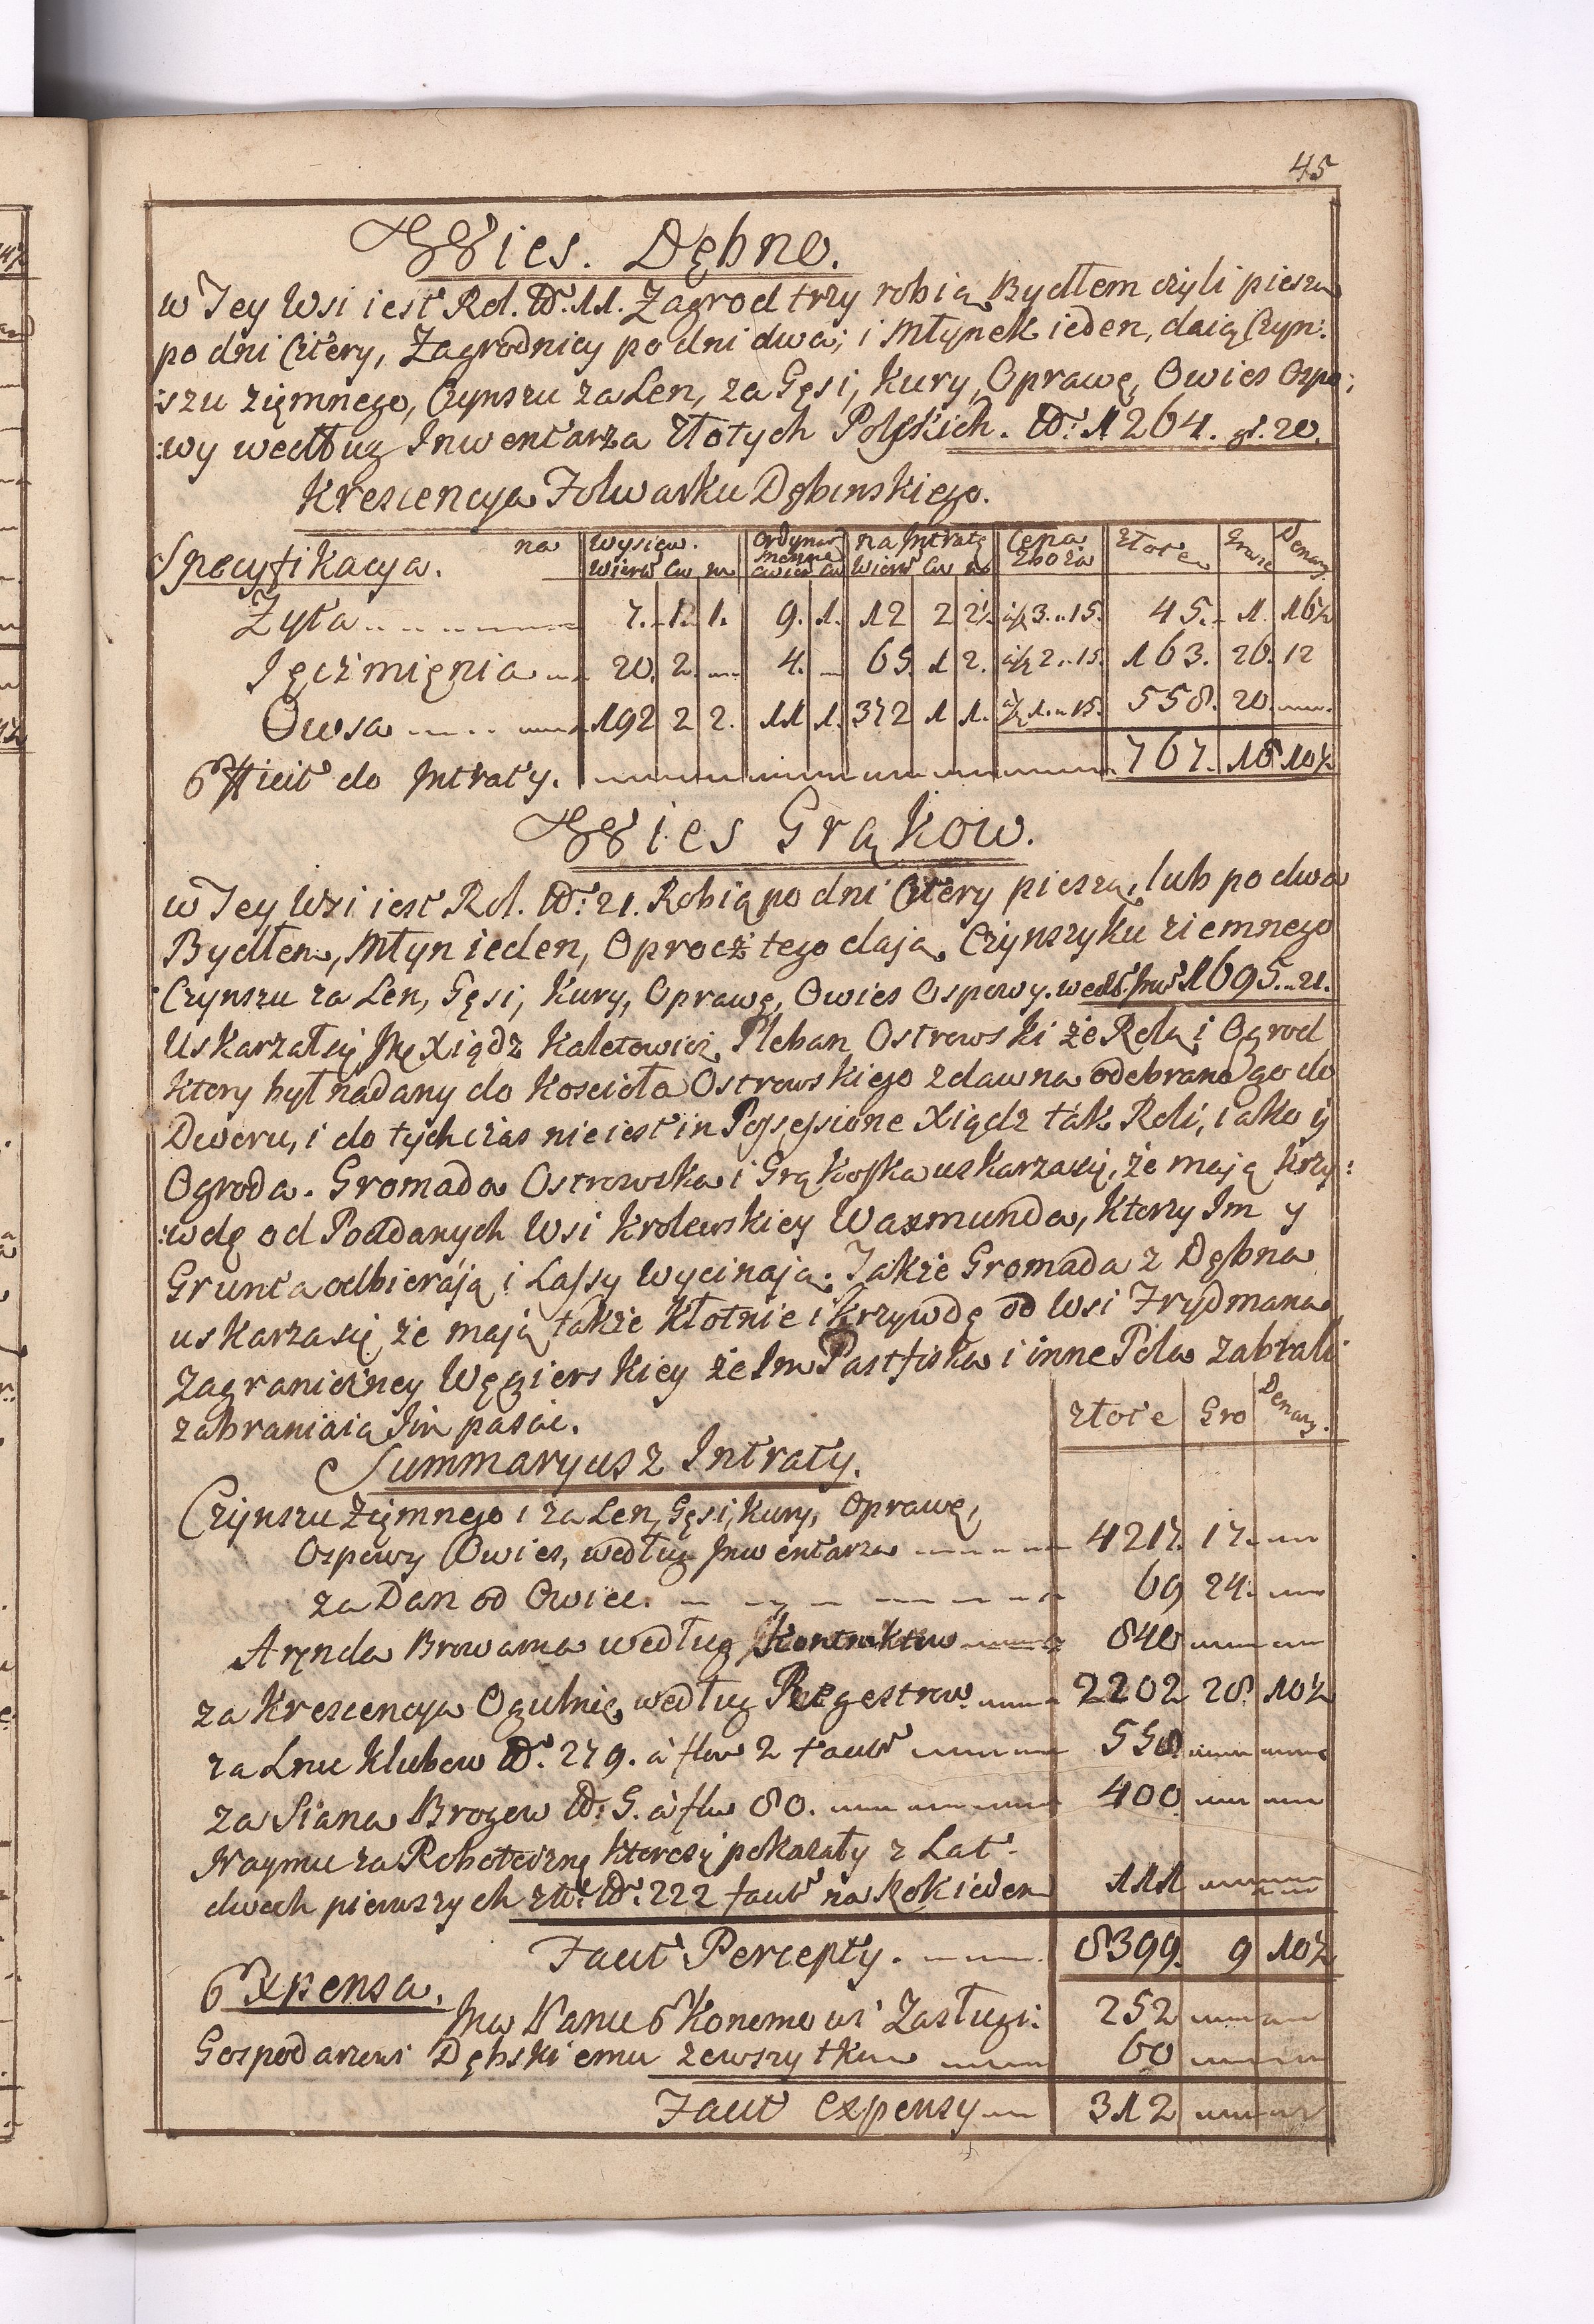 45
Wies. Dębno.
w Tey Wsi iest Rol. No. 11. Zagrod trzy robią Bydłem czyli pieszo
po dni Cztery, Zagrodnicy po dni dwa; i Młynek ieden, daią Czyn:
:szu ziemnego, Czynszu za Len, za Gęsi, Kury, Oprawę, Owies Ospo:
:wy według Inwentarza Złotych Polskich. No: 1264. gr. 20.
Krescencya Folwarku Dębinskiego.
Specyfikacya. na Wysiew. Ordynar na Intratę Cena Złote Grosze Denary
Wiert Cw m Cwiert Cw Wiert Cw m Zboża
Zyta 7. 1. 1. 9. 1. 12 2 2½ a fl 3..15. 45. 1. 16½
Jęczmięnia 20. 2. 4. 65. 1 2. a fl 2..15. 163. 26. 12
Owsa 192 2 2. 11 1. 372 1 1. a fl 1..15. 558. 20.
Efficit do Intraty. 767. 18 10½
Wies Grąkow.
w Tey Wsi iest Rol. No: 21. Robią po dni Cztery pieszą, lub po dwa
Bydłem, Młyn ieden, Oprocz tego dają Czynszyku ziemnego
Czynszu za Len, Gęsi, Kury, Oprawę, Owies Ospowy. wedł: Inw: 1695..21.
Uskarzał się Xiądz Kaletowicz Pleban Ostrowski że Rola i Ogrod
ktory był nadany do Koscioła Ostrowskiego zdawna odebrano go do
Dworu, i do tych czas nie iest in Possessione Xiądz tak Roli, iako y
Ogroda. Gromada Ostrowska i Grąkowska uskarza się, że mają krzy:
:wdę od Poddanych Wsi Krolewskiey Waxmunda, ktorzy Im y
Grunta odbierają i Lassy wycinają. Także Gromada z Dębna
uskarza się że mają także Kłotnie i krzywdę od Wsi Frydmana
Zagraniczney Węgierskiey że Im Pastfiska i inne Pola zabrali
zabraniaią Im pasać.
złote Gro Denary.
Summaryusz Intraty.
Czynszu Ziemnego i za Len, Gęsi, Kury, Oprawę,
Ospowy Owies, według Inwentarza 4217. 17.
za Dan od Owiec. 69 24.
Aręnda Browarna według Kontraktu 840
za Krescencya Ogulnie według Regestrow 2202 28. 10½
za Lnu Klubow No. 279. à flor 2 facit 558
za Siana Brogow No: 5. à flor 80. 400
Naymu za Robociznę ktore się pokazały z Lat
dwoch pierwszych zło: No. 222 facit na Rok ieden 111
Facit Percepty. 8399. 9 10½
Expensa.
Panu Ekonomowi Zasługi: 252
Gospodarzowi Dębskiemu zewszytkim 60
Facit expensy 312